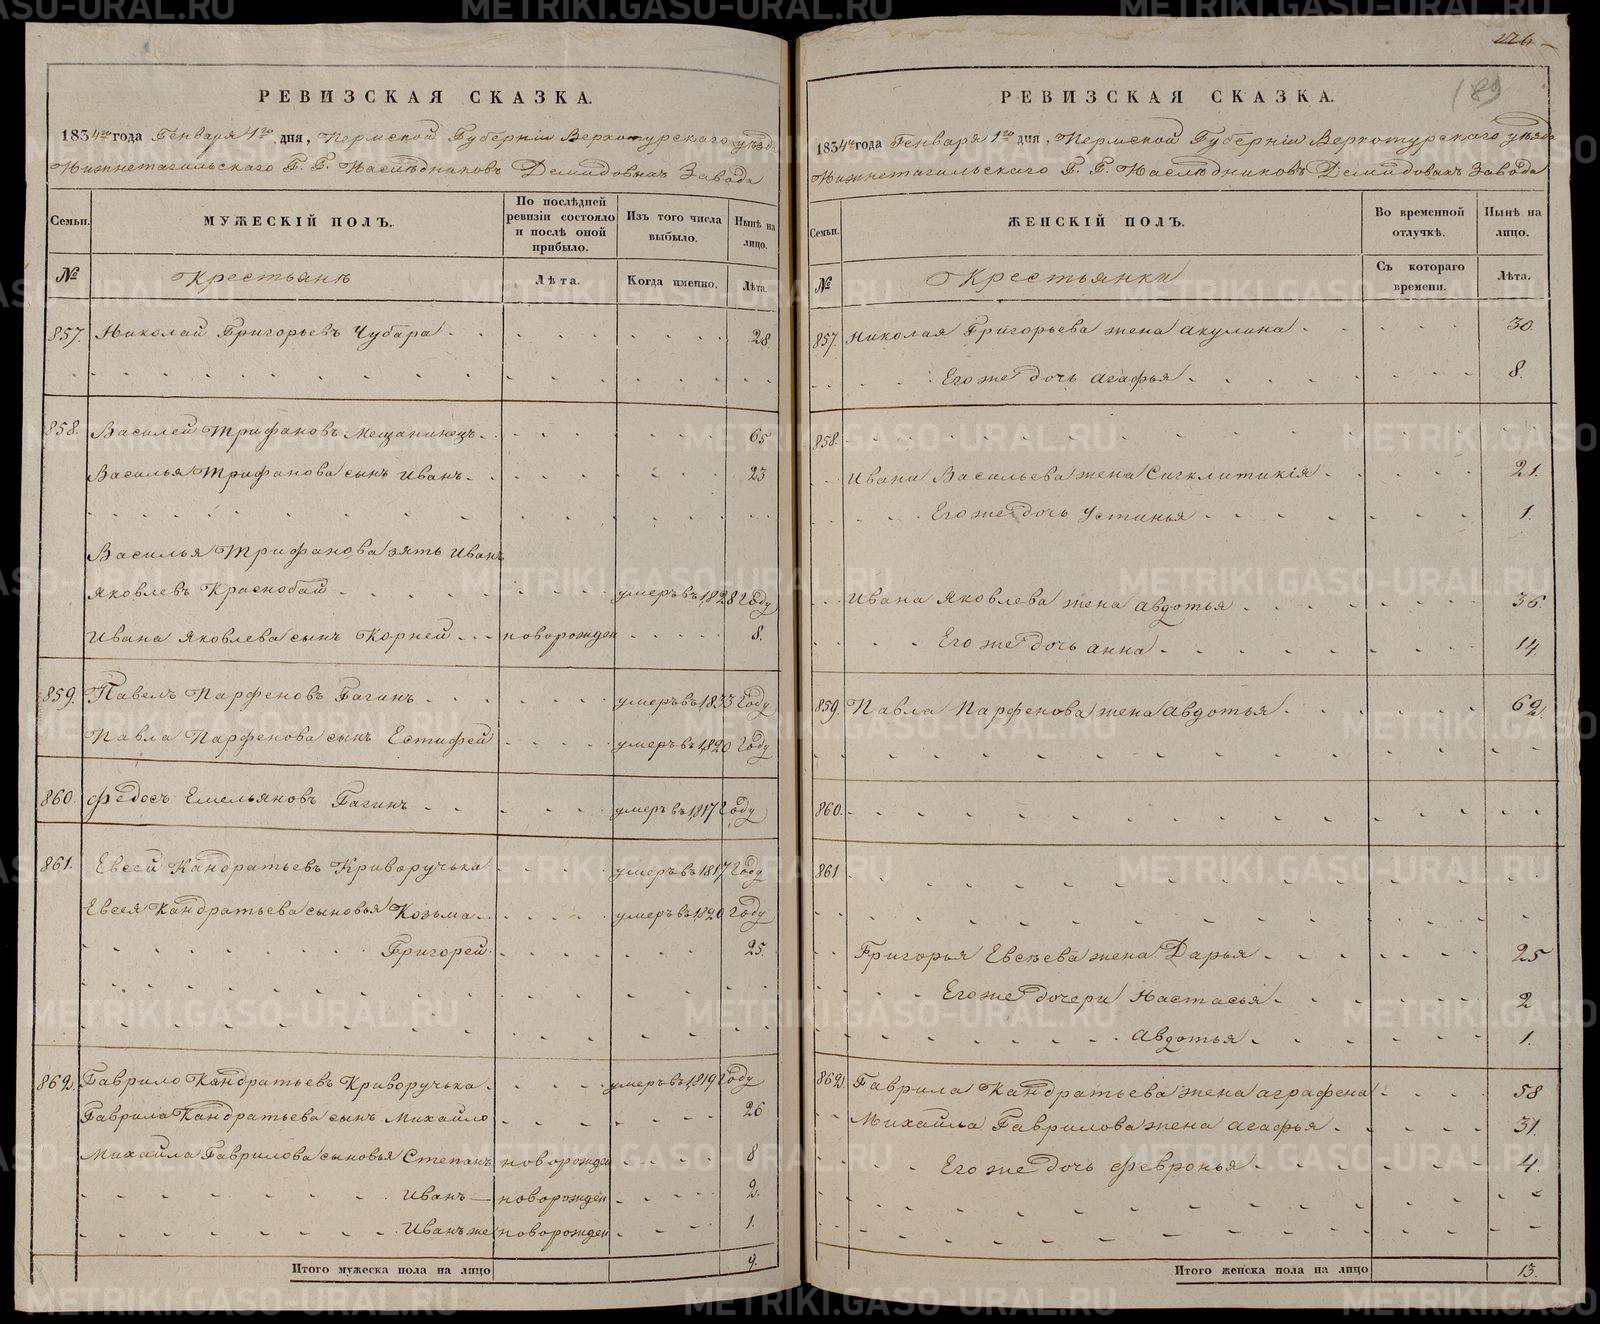 226
189
РЕВИЗСКАЯ СКАЗКА.
1834го года Генваря 1го дня, Пермской Губернiи Верхотурскаго уѣзда
Нижнетагильскаго Г. Г. Наслѣдниковъ Демидовыхъ Завода
Семьи.
МУЖЕСКІЙ ПОЛЪ.
По послѣдней ревизіи состояло и послѣ оной прибыло.
Изъ того числа выбыло.
Нынѣ на лицо.
№ Крестьянъ Лѣта. Когда именно. Лѣта.
857. Николай Григорьевъ Чубара 28
858. Василей Трифановъ Мещанинецъ 65
Василья Трифанова сынъ Иванъ 23
Василья Трифанова зять Иванъ
Яковлевъ Краснобай умеръ въ 1828 Году
Ивана Яковлева сынъ Корней новорожден 8.
859. Павелъ Парфеновъ Гагинъ умеръ въ 1833 Году
Павла Парфенова сынъ Естифей умеръ въ 1820 Году
860. Федосъ Емельяновъ Гагинъ умеръ въ 1817 Году
861. Евсей Кандратьевъ Криворучька умеръ въ 1817 Году
Евсея Кандратьева сыновья Козьма умеръ въ 1820 Году
Григорей 25.
862. Гаврило Кандратьевъ Криворучька умеръ въ 1819 Году
Гаврила Кандратьева сынъ Михайло 26
Михайла Гаврилова сыновья Степанъ новорожден 8
Иванъ новорожден 2.
Иванъ же новорожден 1.
Итого мужеска пола на лицо 9.
РЕВИЗСКАЯ СКАЗКА.
1834го года Генваря 1го дня, Пермской Губернiи Верхотурскаго уѣзда
Нижнетагильскаго Г. Г. Наслѣдниковъ Демидовыхъ Завода
Семьи.
ЖЕНСКІЙ ПОЛЪ.
Во временной отлучкѣ.
Нынѣ на лицо.
№ Крестьянки Съ котораго времени. Лѣта.
857. Николая Григорьева жена Акулина 30
Его же дочь Агафья 8.
858.
Ивана Васильева жена Сигклитикія 21.
Его же дочь Устинья 1.
Ивана Яковлева жена Авдотья 36.
Его же дочь Анна 14.
859. Павла Парфенова жена Авдотья 62.
860.
861
Григорья Евсѣева жена Дарья 25
Его же дочери Настасья 2
Авдотья 1.
862. Гаврила Кандратьева жена Аграфена 58
Михайла Гаврилова жена Агафья 31.
Его же дочь Февронья 4.
Итого женска пола на лицо 13.
METRIKI.GASO-URAL.RU